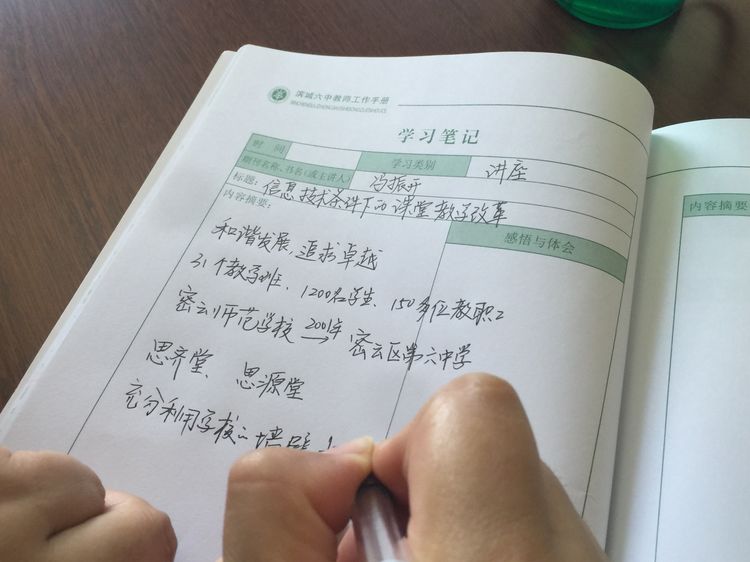 滨城六中教师工作手册
学习笔记
时间 学习类别 讲座
期刊名称、书名(或主讲人) 冯振开
标题: 信息技术条件下的课堂教学改革
内容摘要:
感悟与体会
和谐发展,追求卓越
31个教学班、1200名学生、150多位教职工
密云师范学校 2001年→ 密云区第六中学
思齐堂、思源堂
充分利用学校的墙壁
内容摘要